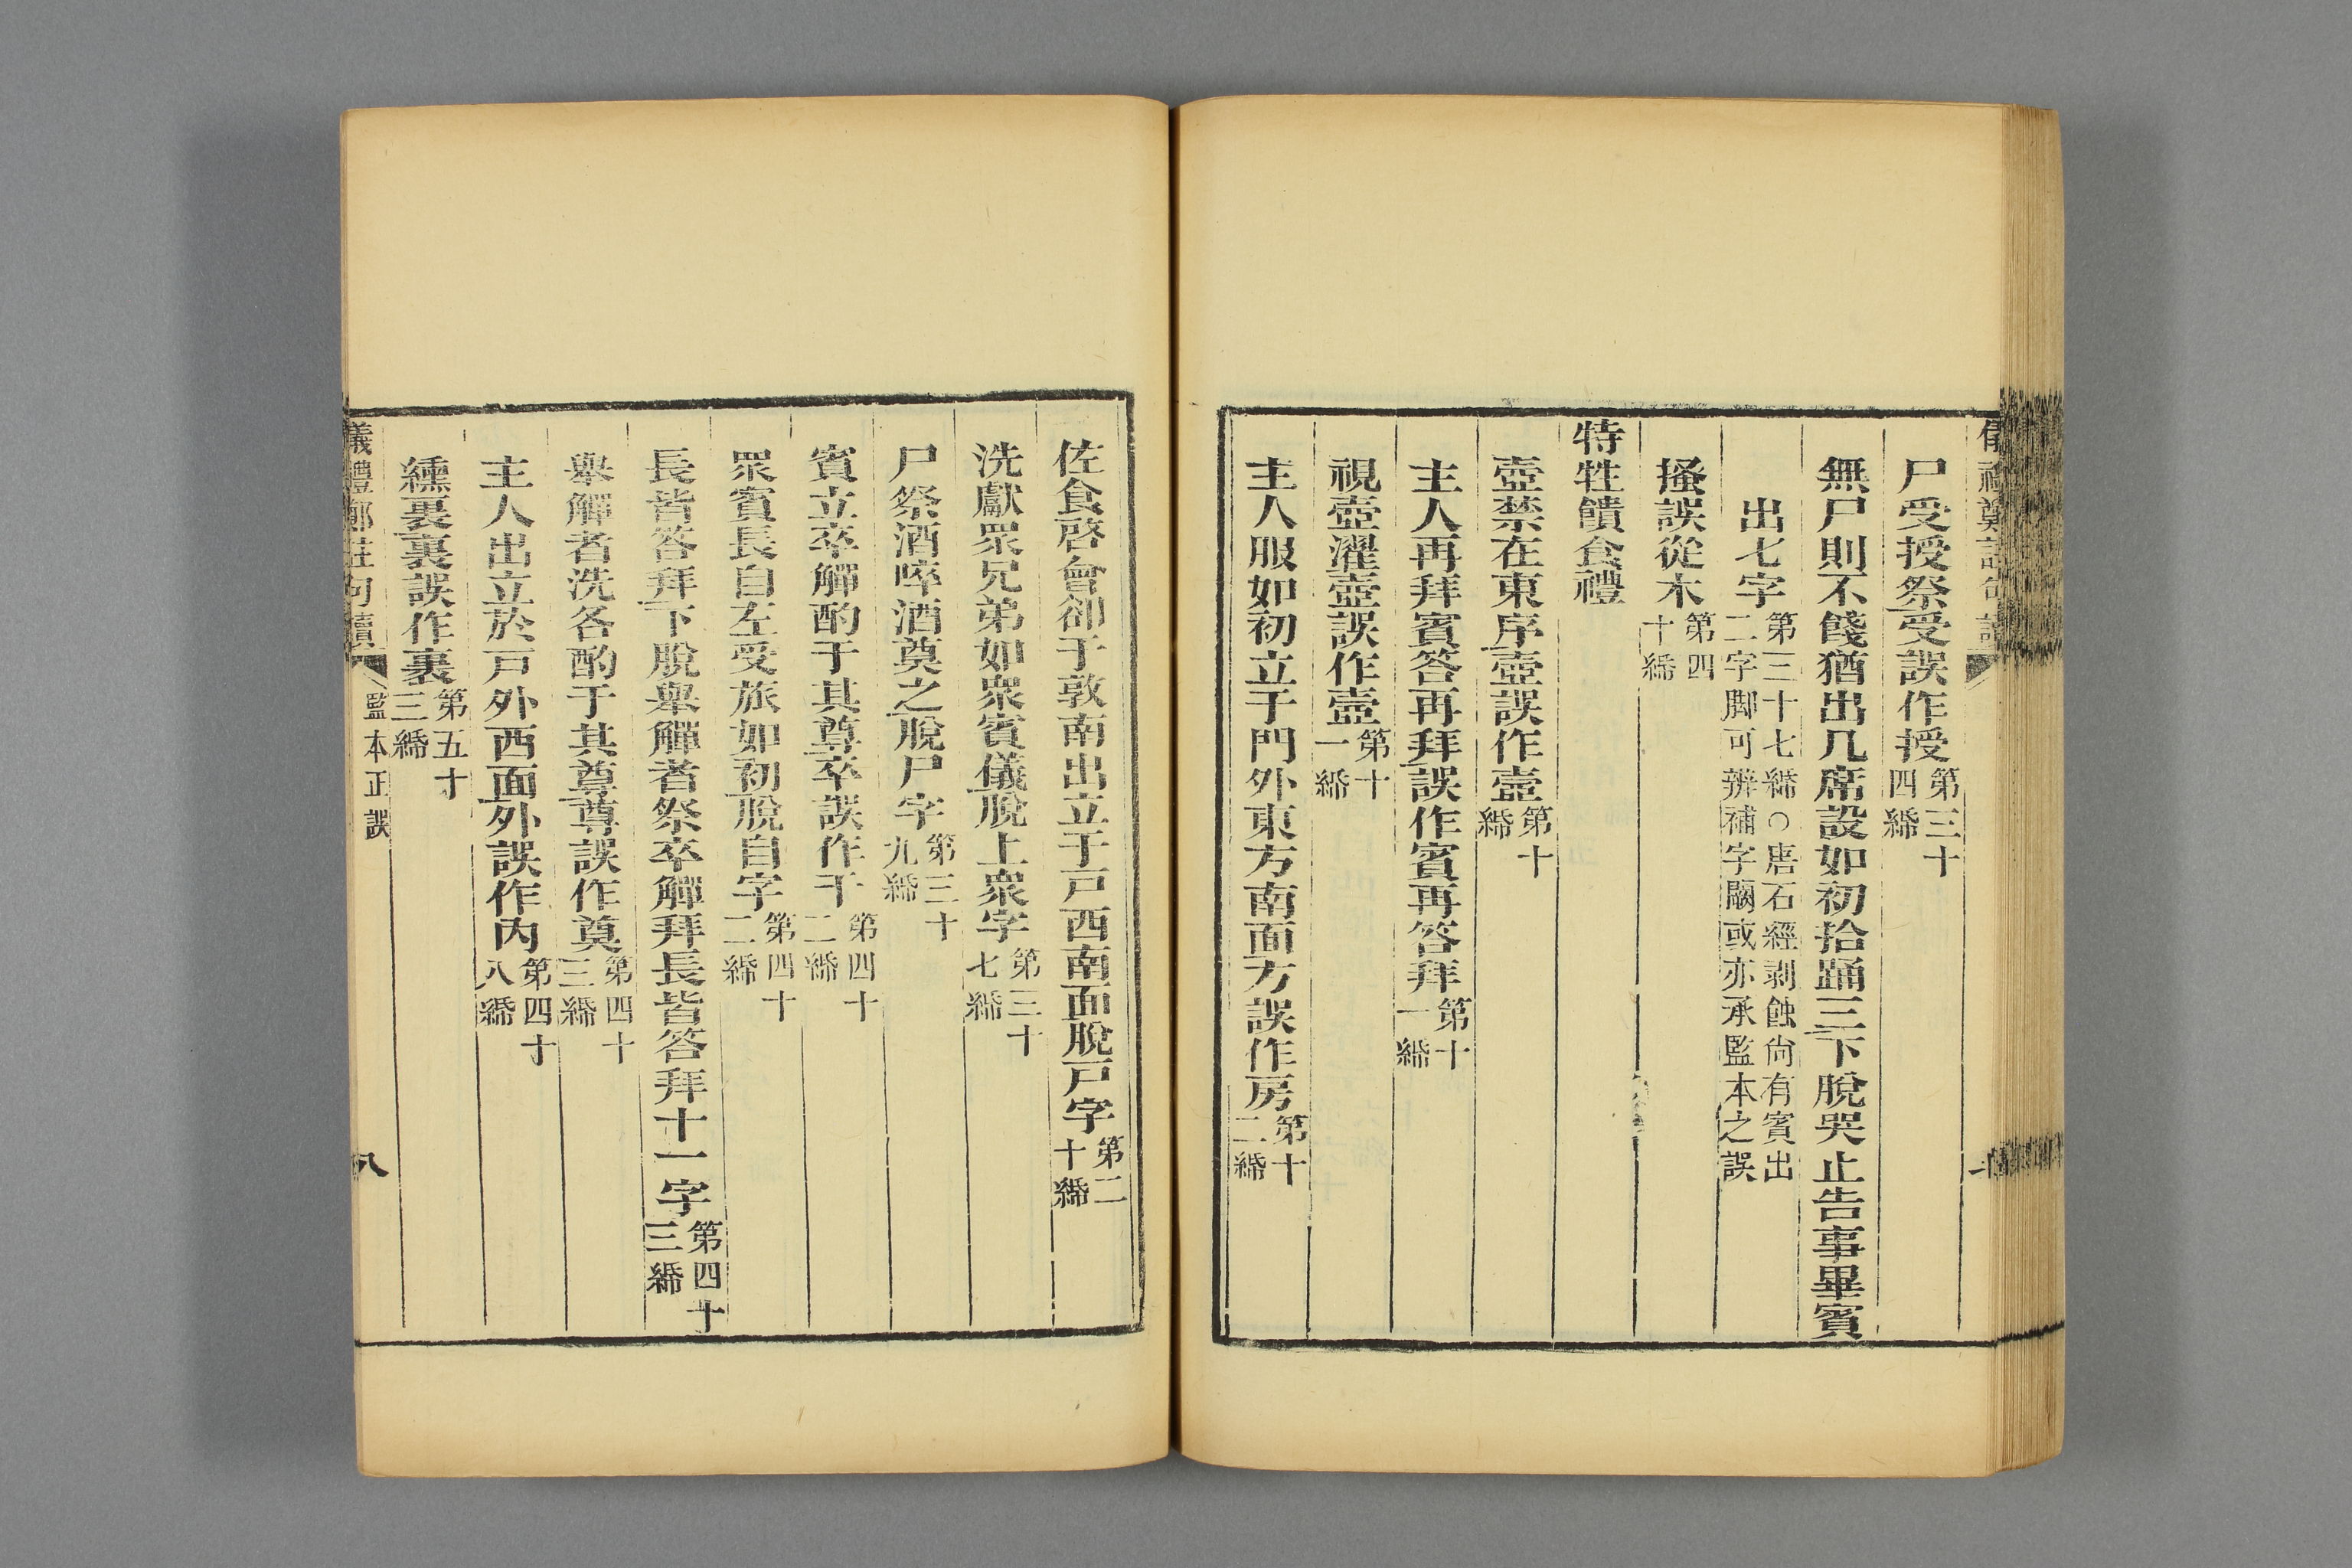 尸受授祭受誤作授第三十四緉
無尸則不餞猶出几席設如初拾踊三下脫哭止告事畢賓
出七字第三十七緉○唐石經剥蝕尚有賓出二字脚可辨補字闕或亦承監本之誤
搔誤從木第四十緉
特牲饋食禮
壺禁在東序壺誤作壼第十緉
主人再拜賓答再拜誤作賓再答拜第十一緉
視壺濯壺誤作壼第十一緉
主人服如初立于門外東方南面方誤作房第十二緉
佐食啓會卻于敦南出立于戸西南面脫戸字第二十緉
洗獻眾兄弟如眾賓儀脫上眾字第三十七緉
尸祭酒啐酒奠之脫尸字第三十九緉
賓立卒觶酌于其尊卒誤作于第四十二緉
眾賓長自左受旅如初脫自字第四十二緉
長皆答拜下脫舉觶者祭卒觶拜長皆答拜十一字第四十三緉
舉觶者洗各酌于其尊尊誤作奠第四十三緉
主人出立於戸外西面外誤作內第四十八緉
纁裏裏誤作裹第五十三緉
儀禮鄭註句讀 監本正誤 八